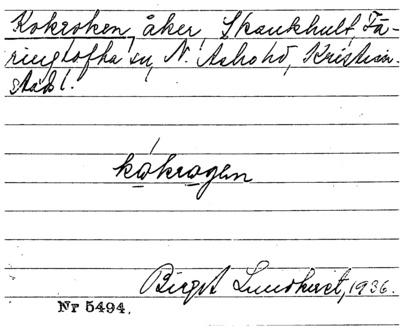 Kokroken, åker, Skankhult, Fä-
ringtofta sn, N. Åsbo hd, Kristian-
stads l.
kókrogen
Birgit Lundkvist, 1936.
Nr 5494.